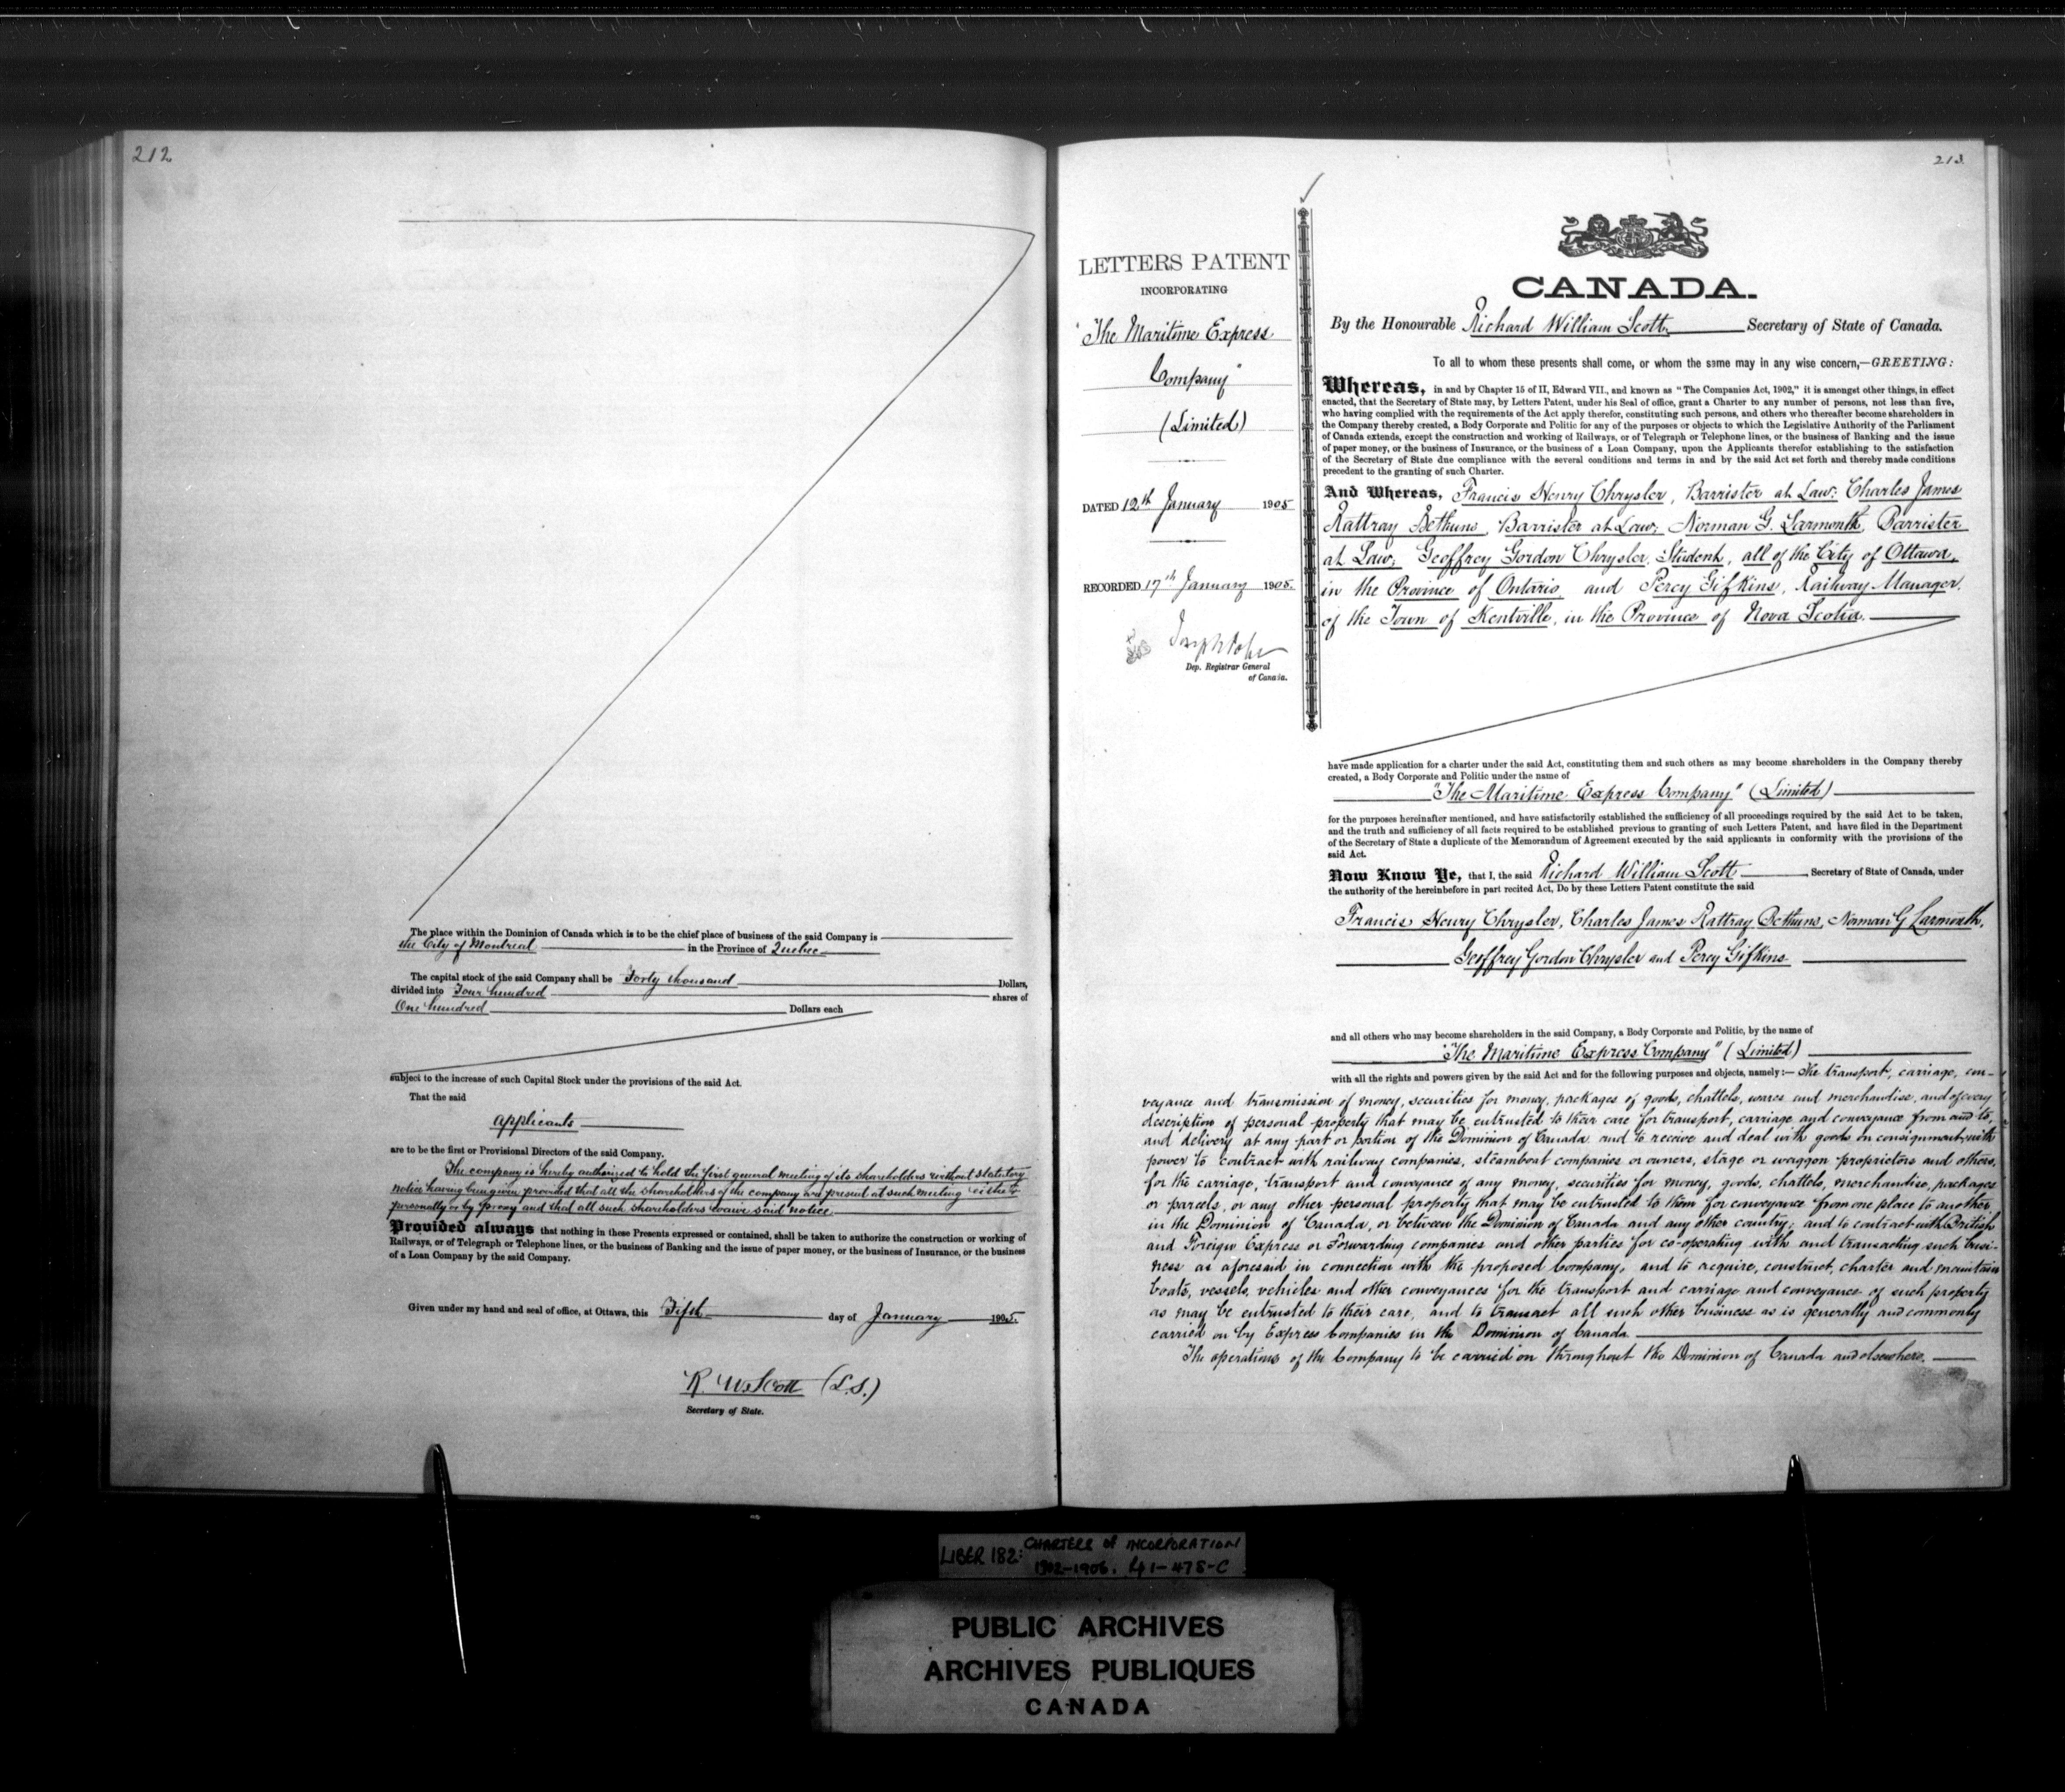 212
The place within the Dominion of Canada which is to be the chief place of business of the said Company is
the City of Montreal in the Province of Quebec
The capital stock of the said Company shall be Forty thousand Dollars,
divided into Four hundred shares of
One hundred Dollars each
subject to the increase of such Capital Stock under the provisions of the said Act.
That the said
applicants
are to be the first or Provisional Directors of the said Company.
The company is hereby authorized to hold the first general meeting of its shareholders without statutory
notice having been given provided that all the shareholders of the company are present at such meeting either
personally or by proxy and that all such shareholders waive said notice.
Provided always that nothing in these Presents expressed or contained, shall be taken to authorize the construction or working of
Railways, or of Telegraph or Telephone lines, or the business of Banking and the issue of paper money, or the business of Insurance, or the business
of a Loan Company by the said Company.
Given under my hand and seal of office, at Ottawa, this Fifth day of January 1905.
R. W. Scott (L.S.)
Secretary of State.
213
LETTERS PATENT
INCORPORATING
"The Maritime Express
Company"
(Limited)
DATED 12th January 1905
RECORDED 17th January 1905.
Joseph Pope
Dep. Registrar General
of Canada.
CANADA.
By the Honourable Richard William Scott, Secretary of State of Canada.
To all to whom these presents shall come, or whom the same may in any wise concern,—GREETING:
Whereas, in and by Chapter 15 of II, Edward VII., and known as "The Companies Act, 1902," it is amongst other things, in effect
enacted, that the Secretary of State may, by Letters Patent, under his Seal of office, grant a Charter to any number of persons, not less than five,
who having complied with the requirements of the Act apply therefor, constituting such persons, and others who thereafter become shareholders in
the Company thereby created, a Body Corporate and Politic for any of the purposes or objects to which the Legislative Authority of the Parliament
of Canada extends, except the construction and working of Railways, or of Telegraph or Telephone lines, or the business of Banking and the issue
of paper money, or the business of Insurance, or the business of a Loan Company, upon the Applicants therefor establishing to the satisfaction
of the Secretary of State due compliance with the several conditions and terms in and by the said Act set forth and thereby made conditions
precedent to the granting of such Charter.
And Whereas, Francis Henry Chrysler, Barrister at Law; Charles James
Rattray Bethune, Barrister at Law; Norman G. Larmonth, Barrister
at Law; Geoffrey Gordon Chrysler, Student, all of the City of Ottawa,
in the Province of Ontario and Percy Gifkins, Railway Manager,
of the Town of Kentville, in the Province of Nova Scotia.
have made application for a charter under the said Act, constituting them and such others as may become shareholders in the Company thereby
created, a Body Corporate and Politic under the name of
"The Maritime Express Company" (Limited)
for the purposes hereinafter mentioned, and have satisfactorily established the sufficiency of all proceedings required by the said Act to be taken,
and the truth and sufficiency of all facts required to be established previous to granting of such Letters Patent, and have filed in the Department
of the Secretary of State a duplicate of the Memorandum of Agreement executed by the said applicants in conformity with the provisions of the
said Act.
Now Know Ye, that I, the said Richard William Scott, Secretary of State of Canada, under
the authority of the hereinbefore in part recited Act, Do by these Letters Patent constitute the said
Francis Henry Chrysler, Charles James Rattray Bethune, Norman G Larmonth,
Geoffrey Gordon Chrysler and Percy Gifkins
and all others who may become shareholders in the said Company, a Body Corporate and Politic, by the name of
"The Maritime Express Company" (Limited)
with all the rights and powers given by the said Act and for the following purposes and objects, namely:— The transport, carriage, con-
veyance and transmission of money, securities for money, packages of goods, chattels, wares and merchandise, and of every
description of personal property that may be entrusted to their care for transport, carriage and conveyance from and to,
and delivery at any part or portion of the Dominion of Canada and to receive and deal with goods on consignment, with
power to contract with railway companies, steamboat companies or owners, stage or waggon proprietors and others,
for the carriage, transport and conveyance of any money, securities for money, goods, chattels, merchandise, packages
or parcels, or any other personal property that may be entrusted to them for conveyance from one place to another
in the Dominion of Canada, or between the Dominion of Canada and any other country; and to contract with British
and Foreign Express or Forwarding companies and other parties for co-operating with and transacting such busi-
ness as aforesaid in connection with the proposed Company, and to acquire, construct, charter and maintain
boats, vessels, vehicles and other conveyances for the transport and carriage and conveyance of such property
as may be entrusted to their care, and to transact all such other business as is generally and commonly
carried on by Express Companies in the Dominion of Canada
The operations of the Company to be carried on throughout the Dominion of Canada and elsewhere.
LIBER 182: CHARTERS of INCORPORATION
1902-1906.
PUBLIC ARCHIVES
ARCHIVES PUBLIQUES
CANADA